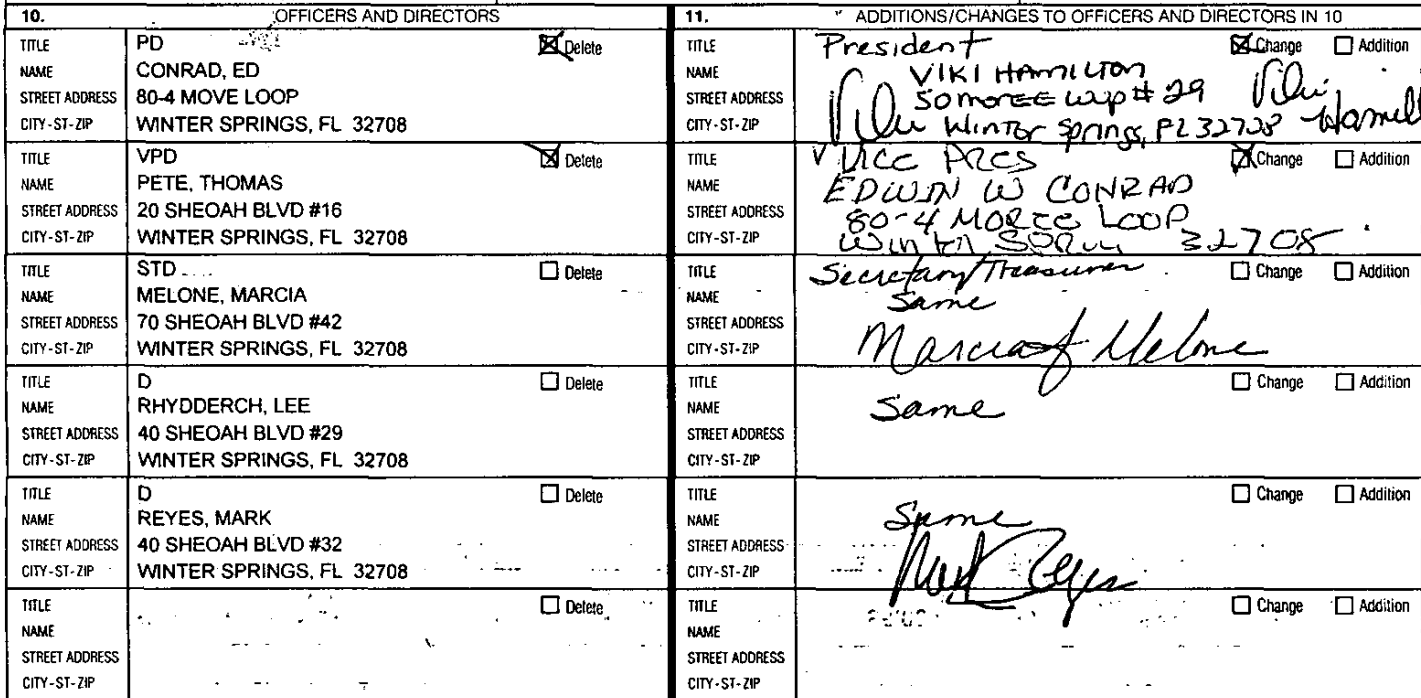 10. OFFICERS AND DIRECTORS
TITLE PD ☒ Delete
NAME CONRAD, ED
STREET ADDRESS 80-4 MOVE LOOP
CITY-ST-ZIP WINTER SPRINGS, FL 32708
TITLE VPD ☒ Delete
NAME PETE, THOMAS
STREET ADDRESS 20 SHEOAH BLVD #16
CITY-ST-ZIP WINTER SPRINGS, FL 32708
TITLE STD ☐ Delete
NAME MELONE, MARCIA
STREET ADDRESS 70 SHEOAH BLVD #42
CITY-ST-ZIP WINTER SPRINGS, FL 32708
TITLE D ☐ Delete
NAME RHYDDERCH, LEE
STREET ADDRESS 40 SHEOAH BLVD #29
CITY-ST-ZIP WINTER SPRINGS, FL 32708
TITLE D ☐ Delete
NAME REYES, MARK
STREET ADDRESS 40 SHEOAH BLVD #32
CITY-ST-ZIP WINTER SPRINGS, FL 32708
TITLE ☐ Delete
NAME
STREET ADDRESS
CITY-ST-ZIP
11. ADDITIONS/CHANGES TO OFFICERS AND DIRECTORS IN 10
TITLE President ☒ Change ☐ Addition
NAME VIKI HAMILTON
STREET ADDRESS #29 Viki
CITY-ST-ZIP Winter Springs, FL 32708
TITLE VICE PRES ☒ Change ☐ Addition
NAME EDWIN W CONRAD
STREET ADDRESS 80-4 LOOP
CITY-ST-ZIP 32708
TITLE Secretary/Treasurer ☐ Change ☐ Addition
NAME Same
STREET ADDRESS
CITY-ST-ZIP Melone
TITLE ☐ Change ☐ Addition
NAME Same
STREET ADDRESS
CITY-ST-ZIP
TITLE ☐ Change ☐ Addition
NAME Same
STREET ADDRESS
CITY-ST-ZIP Mark Reyes
TITLE ☐ Change ☐ Addition
NAME
STREET ADDRESS
CITY-ST-ZIP